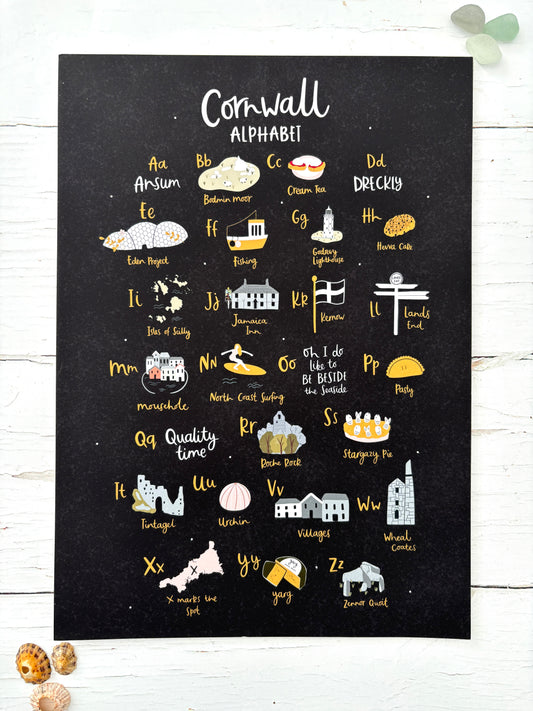 Cornwall
ALPHABET
Aa
Ansum
Bb
Bodmin Moor
Cc
Cream Tea
Dd
DRECKLY
Ee
Eden Project
Ff
Fishing
Gg
Godrevy
Lighthouse
Hh
Hevva Cake
Ii
Isles of Scilly
Jj
Jamaica
Inn
Kk
Kernow
Ll
Lands
End
Mm
mousehole
Nn
North Coast Surfing
Oo
Oh I do
like to
BE BESIDE
the Seaside
Pp
Pasty
Qq
Quality
time
Rr
Roche Rock
Ss
Stargazy Pie
Tt
Tintagel
Uu
Urchin
Vv
Villages
Ww
Wheal
Coates
Xx
X marks the
Spot
Yy
yarg
Zz
Zennor Quoit